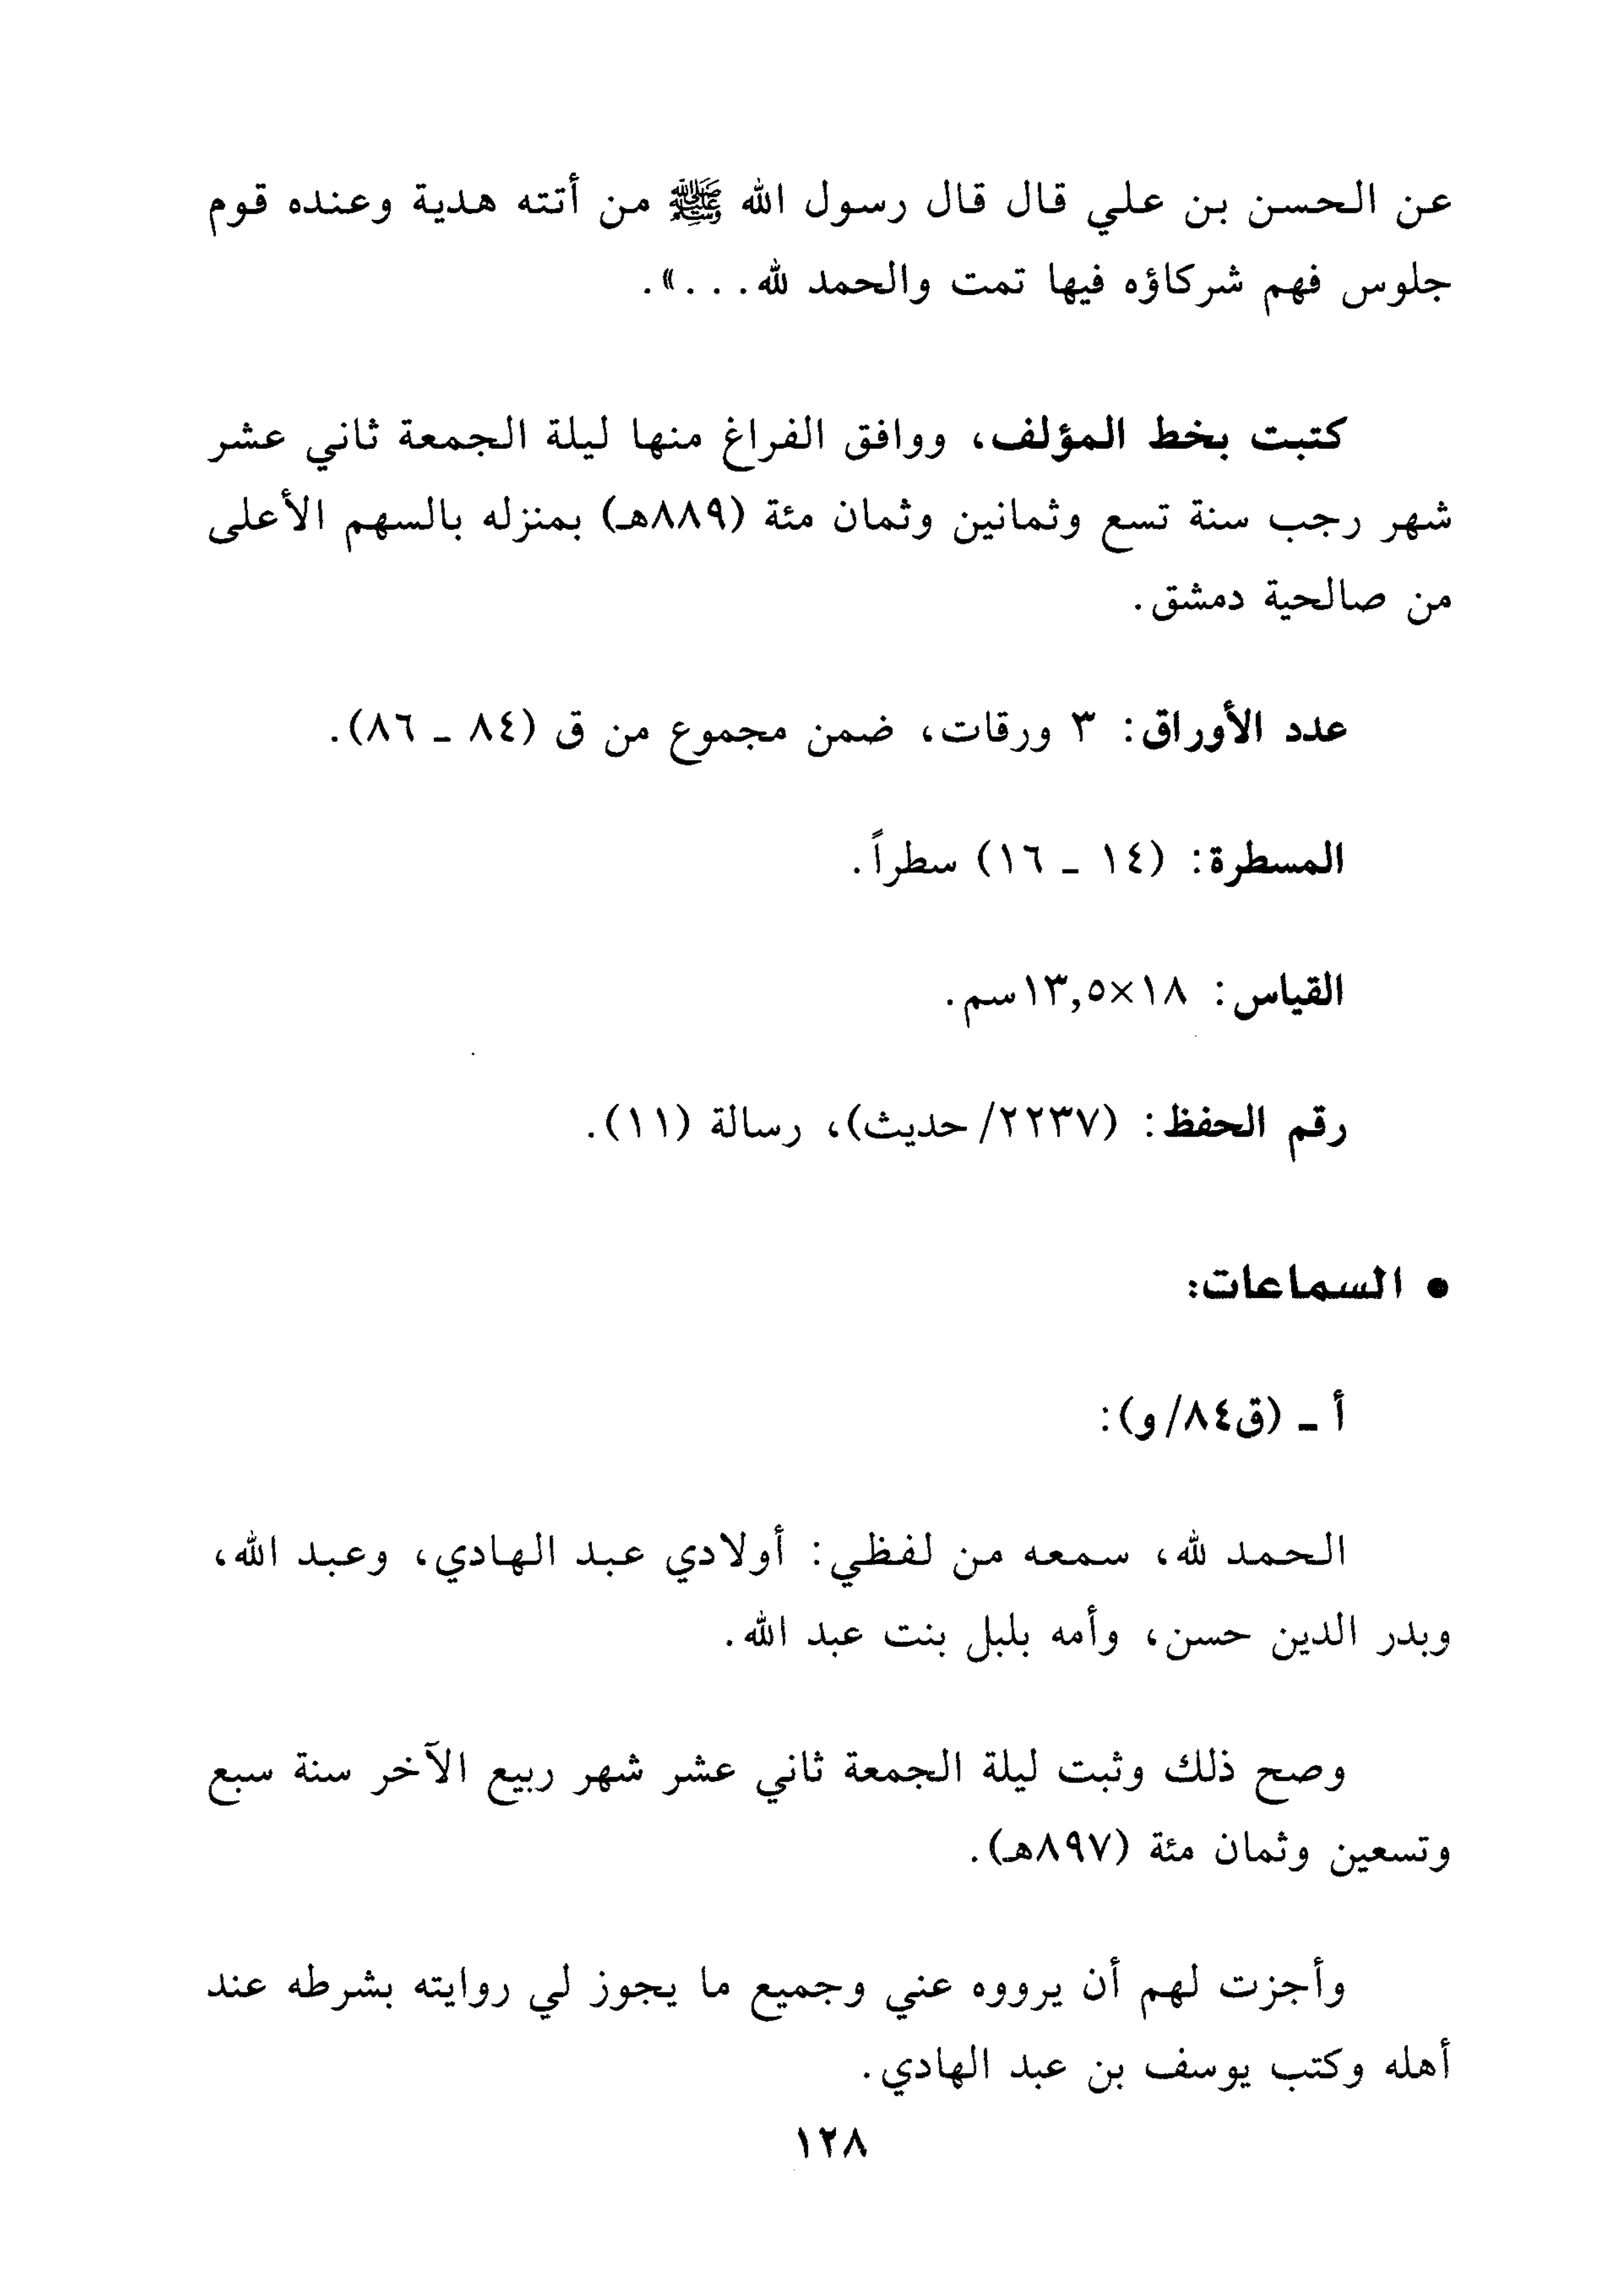 عن الحسن بن علي قال قال رسول الله ﷺ من أتته هدية وعنده قوم
جلوس فهم شركاؤه فيها تمت والحمد لله. . .».
كتبت بخط المؤلف، ووافق الفراغ منها ليلة الجمعة ثاني عشر
شهر رجب سنة تسع وثمانين وثمان مئة (٨٨٩هـ) بمنزله بالسهم الأعلى
من صالحية دمشق.
عدد الأوراق: ٣ ورقات، ضمن مجموع من ق (٨٤ ـ ٨٦).
المسطرة: (١٤ ـ ١٦) سطراً.
القياس: ١٨×١٣,٥سم.
رقم الحفظ: (٢٢٣٧/حديث)، رسالة (١١).
• السماعات:
أ ـ (ق٨٤/و):
الحمد لله، سمعه من لفظي: أولادي عبد الهادي، وعبد الله،
وبدر الدين حسن، وأمه بلبل بنت عبد الله.
وصح ذلك وثبت ليلة الجمعة ثاني عشر شهر ربيع الآخر سنة سبع
وتسعين وثمان مئة (٨٩٧هـ).
وأجزت لهم أن يرووه عني وجميع ما يجوز لي روايته بشرطه عند
أهله وكتب يوسف بن عبد الهادي.
١٢٨